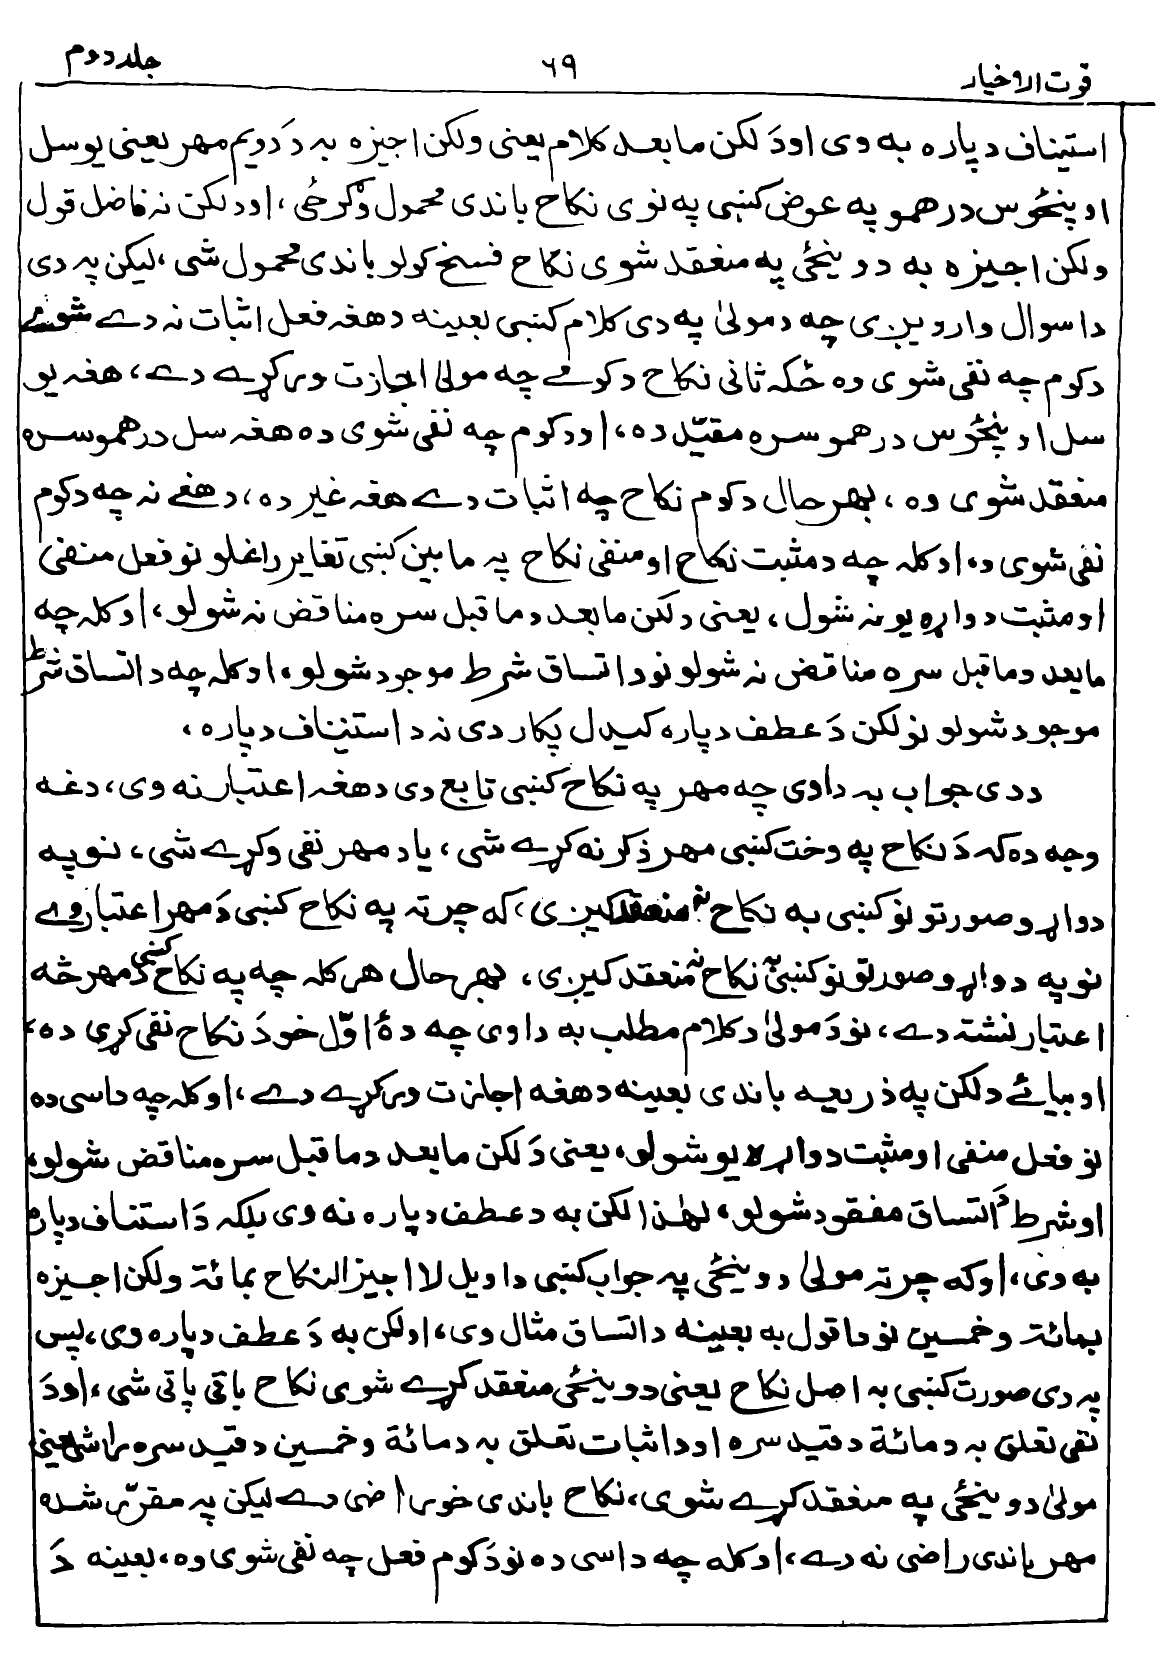 قوت الاخیار
۶۹
جلد دوم
استیناف دپاره به وی اودَ لکن مابعد کلام یعنی ولکن اجیزه به دَ دویم مهر یعنی یوسل
اوپنځوس درهمو په عوض کښې په نوی نکاح باندی محمول وګرځی، اودلکن نه فاضل قول
ولکن اجیزه به دوینځی په منعقد شوی نکاح فسخ کولو باندی محمول شی، لیکن په دی
داسوال واردیږی چه دمولیٰ په دی کلام کښې بعینه دهغه فعل اثبات نه دے شوے
دکوم چه نفی شوی وه ځکه ثانی نکاح دکومے چه مولیٰ اجازت ورکړے دے، هغه یو
سل اوپنځوس درهمو سره مقیّد ده، اودکوم چه نفی شوی ده هغه سل درهمو سره
منعقد شوی وه، بهرحال دکوم نکاح چه اثبات دے هغه غیر ده، دهغے نه چه دکوم
نفی شوی وه، اوکله چه دمثبت نکاح اومنفی نکاح په مابین کښې تغایر راغلو نوفعل منفی
اومثبت دواړه یو نه شول، یعنی دلکن مابعد دماقبل سره مناقض نه شولو، اوکله چه
مابعد دماقبل سره مناقض نه شولو نود اتساق شرط موجود شولو، اوکله چه د اتساق شرط
موجود شولو نو لکن دَ عطف دپاره کیدل پکار دی نه د استیناف دپاره،
ددی جواب به داوی چه مهر په نکاح کښې تابع دی دهغه اعتبار نه وی، دغه
وجه ده که دَ نکاح په وخت کښې مهر ذکر نه کړے شی، یا د مهر نفی وکړے شی، نو په
دواړو صورتونو کښې به نکاح نه منعقد کیږی، که چرته په نکاح کښې دَ مهر اعتبار وے
نو په دواړو صورتونو کښې به نکاح نه منعقد کیږی، بهرحال هرکله چه په نکاح کښې دَ مهر څه
اعتبار نشته دے، نو دَ مولیٰ د کلام مطلب به داوی چه دهٔ اوّل خودَ نکاح نفی کړی ده،
اوبیائے دلکن په ذریعه باندی بعینه دهغه اجازت ورکړے دے، اوکله چه داسی ده
نو فعل منفی اومثبت دواړه یو شولو، یعنی دَ لکن مابعد دماقبل سره مناقض شولو،
اوشرط دَ اتساق مفقود شولو، لهٰذا لکن به دعطف دپاره نه وی بلکه دَ استناف دپاره
به وی، اوکه چرته مولیٰ دوینځی په جواب کښې داویل لا اجیز النکاح بمائة ولکن اجیزه
بمائة وخمسین نوداقول به بعینه داتساق مثال وی، اولکن به دَ عطف دپاره وی، پس
په دی صورت کښې به اصل نکاح یعنی دوینځی منعقد کړے شوی نکاح باقی پاتی شی، اودَ
نفی تعلق به دمائة دقید سره اوداثبات تعلق به دمائة وخمسین دقید سره راشی یعنی
مولیٰ دوینځی په منعقد کړے شوی، نکاح باندی خو راضی دے لیکن په مقرّر شده
مهر باندی راضی نه دے، اوکله چه داسی ده نودَ کوم فعل چه نفی شوی وه، بعینه دَ